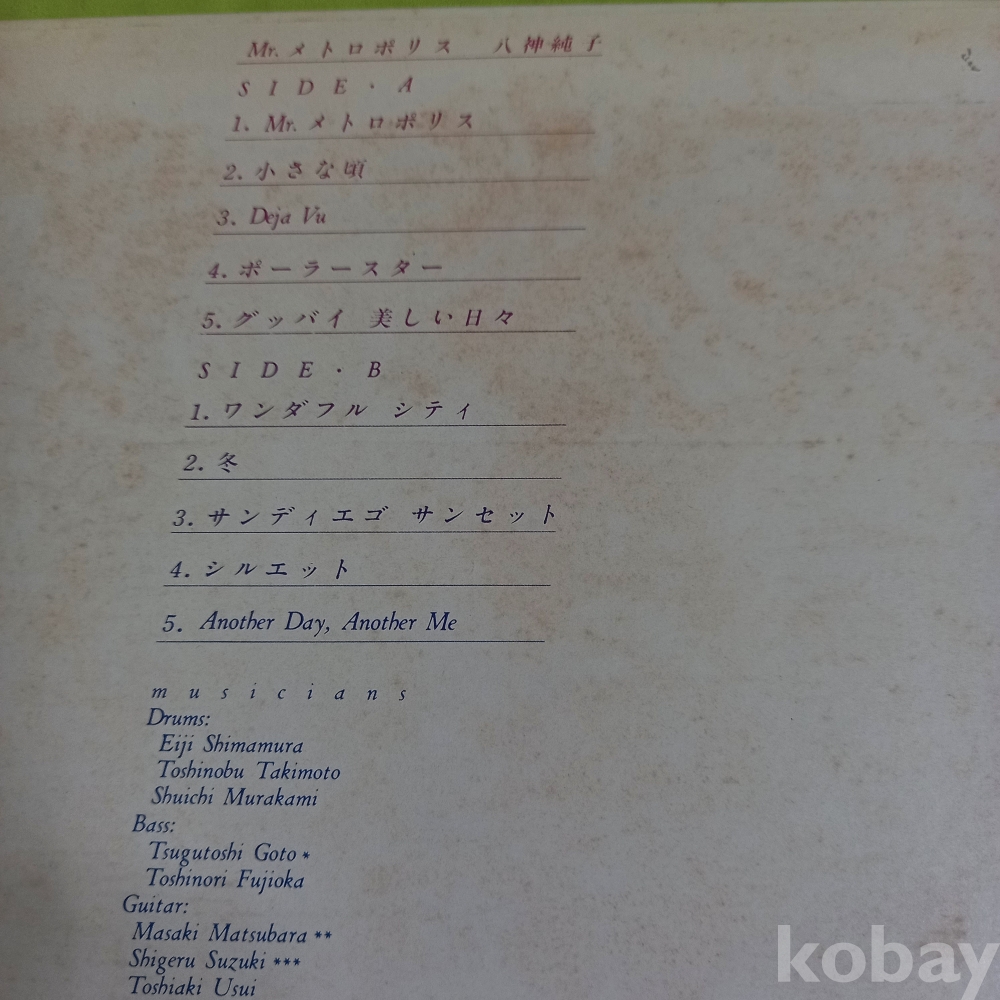 Mr. メトロポリス 八神純子
SIDE・A
1. Mr. メトロポリス
2. 小さな頃
3. Deja Vu
4. ポーラースター
5. グッバイ 美しい日々
SIDE・B
1. ワンダフル シティ
2. 冬
3. サンディエゴ サンセット
4. シルエット
5. Another Day, Another Me
musicians
Drums:
Eiji Shimamura
Toshinobu Takimoto
Shuichi Murakami
Bass:
Tsugutoshi Goto *
Toshinori Fujioka
Guitar:
Masaki Matsubara **
Shigeru Suzuki ***
Toshiaki Usui
kobay